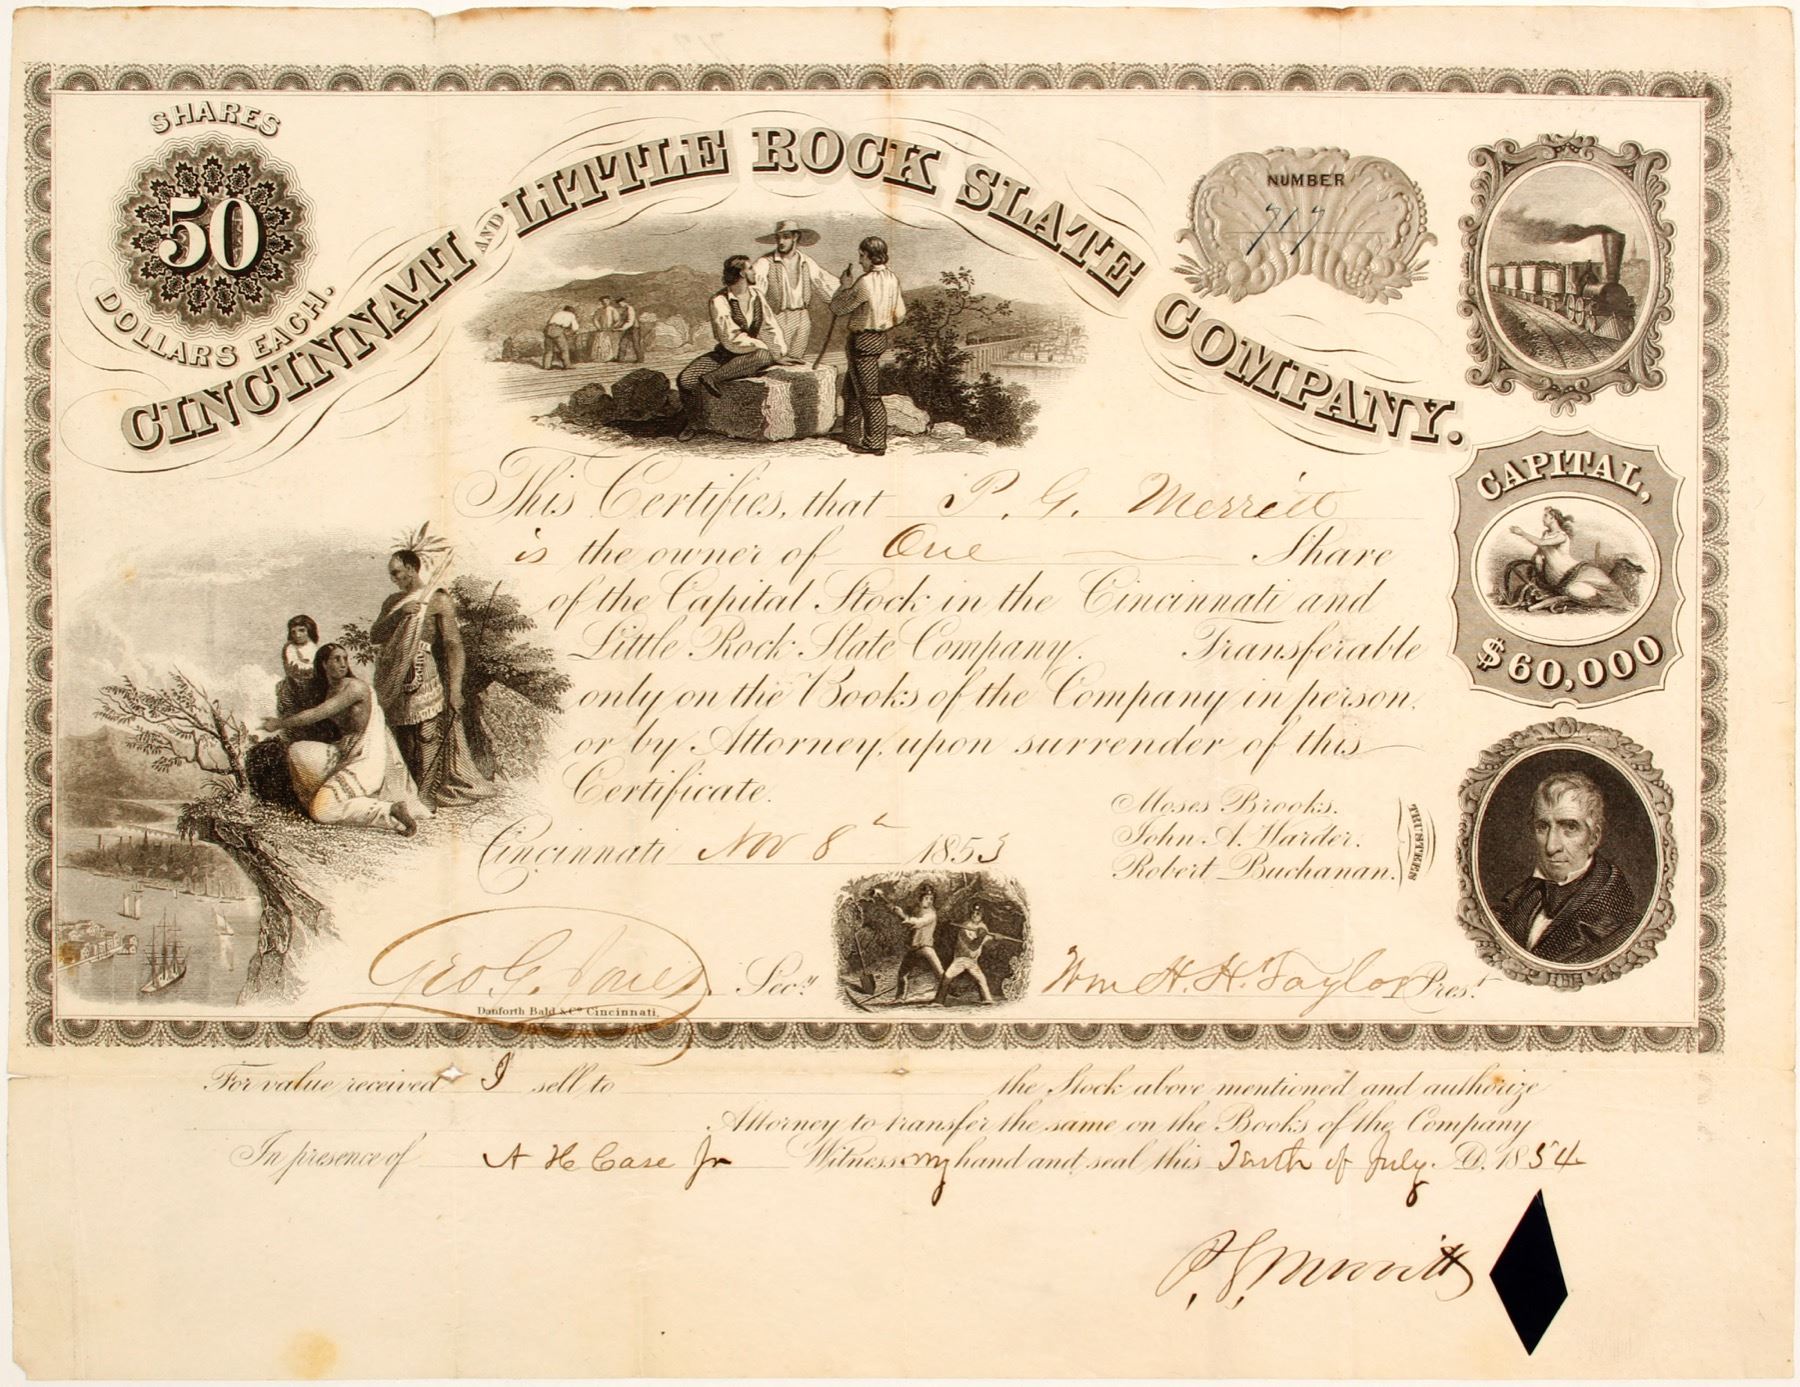 SHARES
50
DOLLARS EACH.
CINCINNATI AND LITTLE ROCK SLATE COMPANY.
NUMBER
717
This Certifies, that P. G. Merritt
is the owner of One Share
of the Capital Stock in the Cincinnati and
Little Rock Slate Company. Transferable
only on the Books of the Company in person
or by Attorney, upon surrender of this
Certificate.
Cincinnati Nov 8th 1853
CAPITAL,
$60,000
Moses Brooks.
John A. Warder.
Robert Buchanan.
TRUSTEES
Geo G. Jones Secy.
Wm H. H. Taylor Prest.
Danforth Bald & Co Cincinnati.
For value received I sell to the Stock above mentioned and authorize
Attorney to transfer the same on the Books of the Company
In presence of A H Case Jr Witness my hand and seal this Tenth of July A.D. 1854
P. G. Merritt